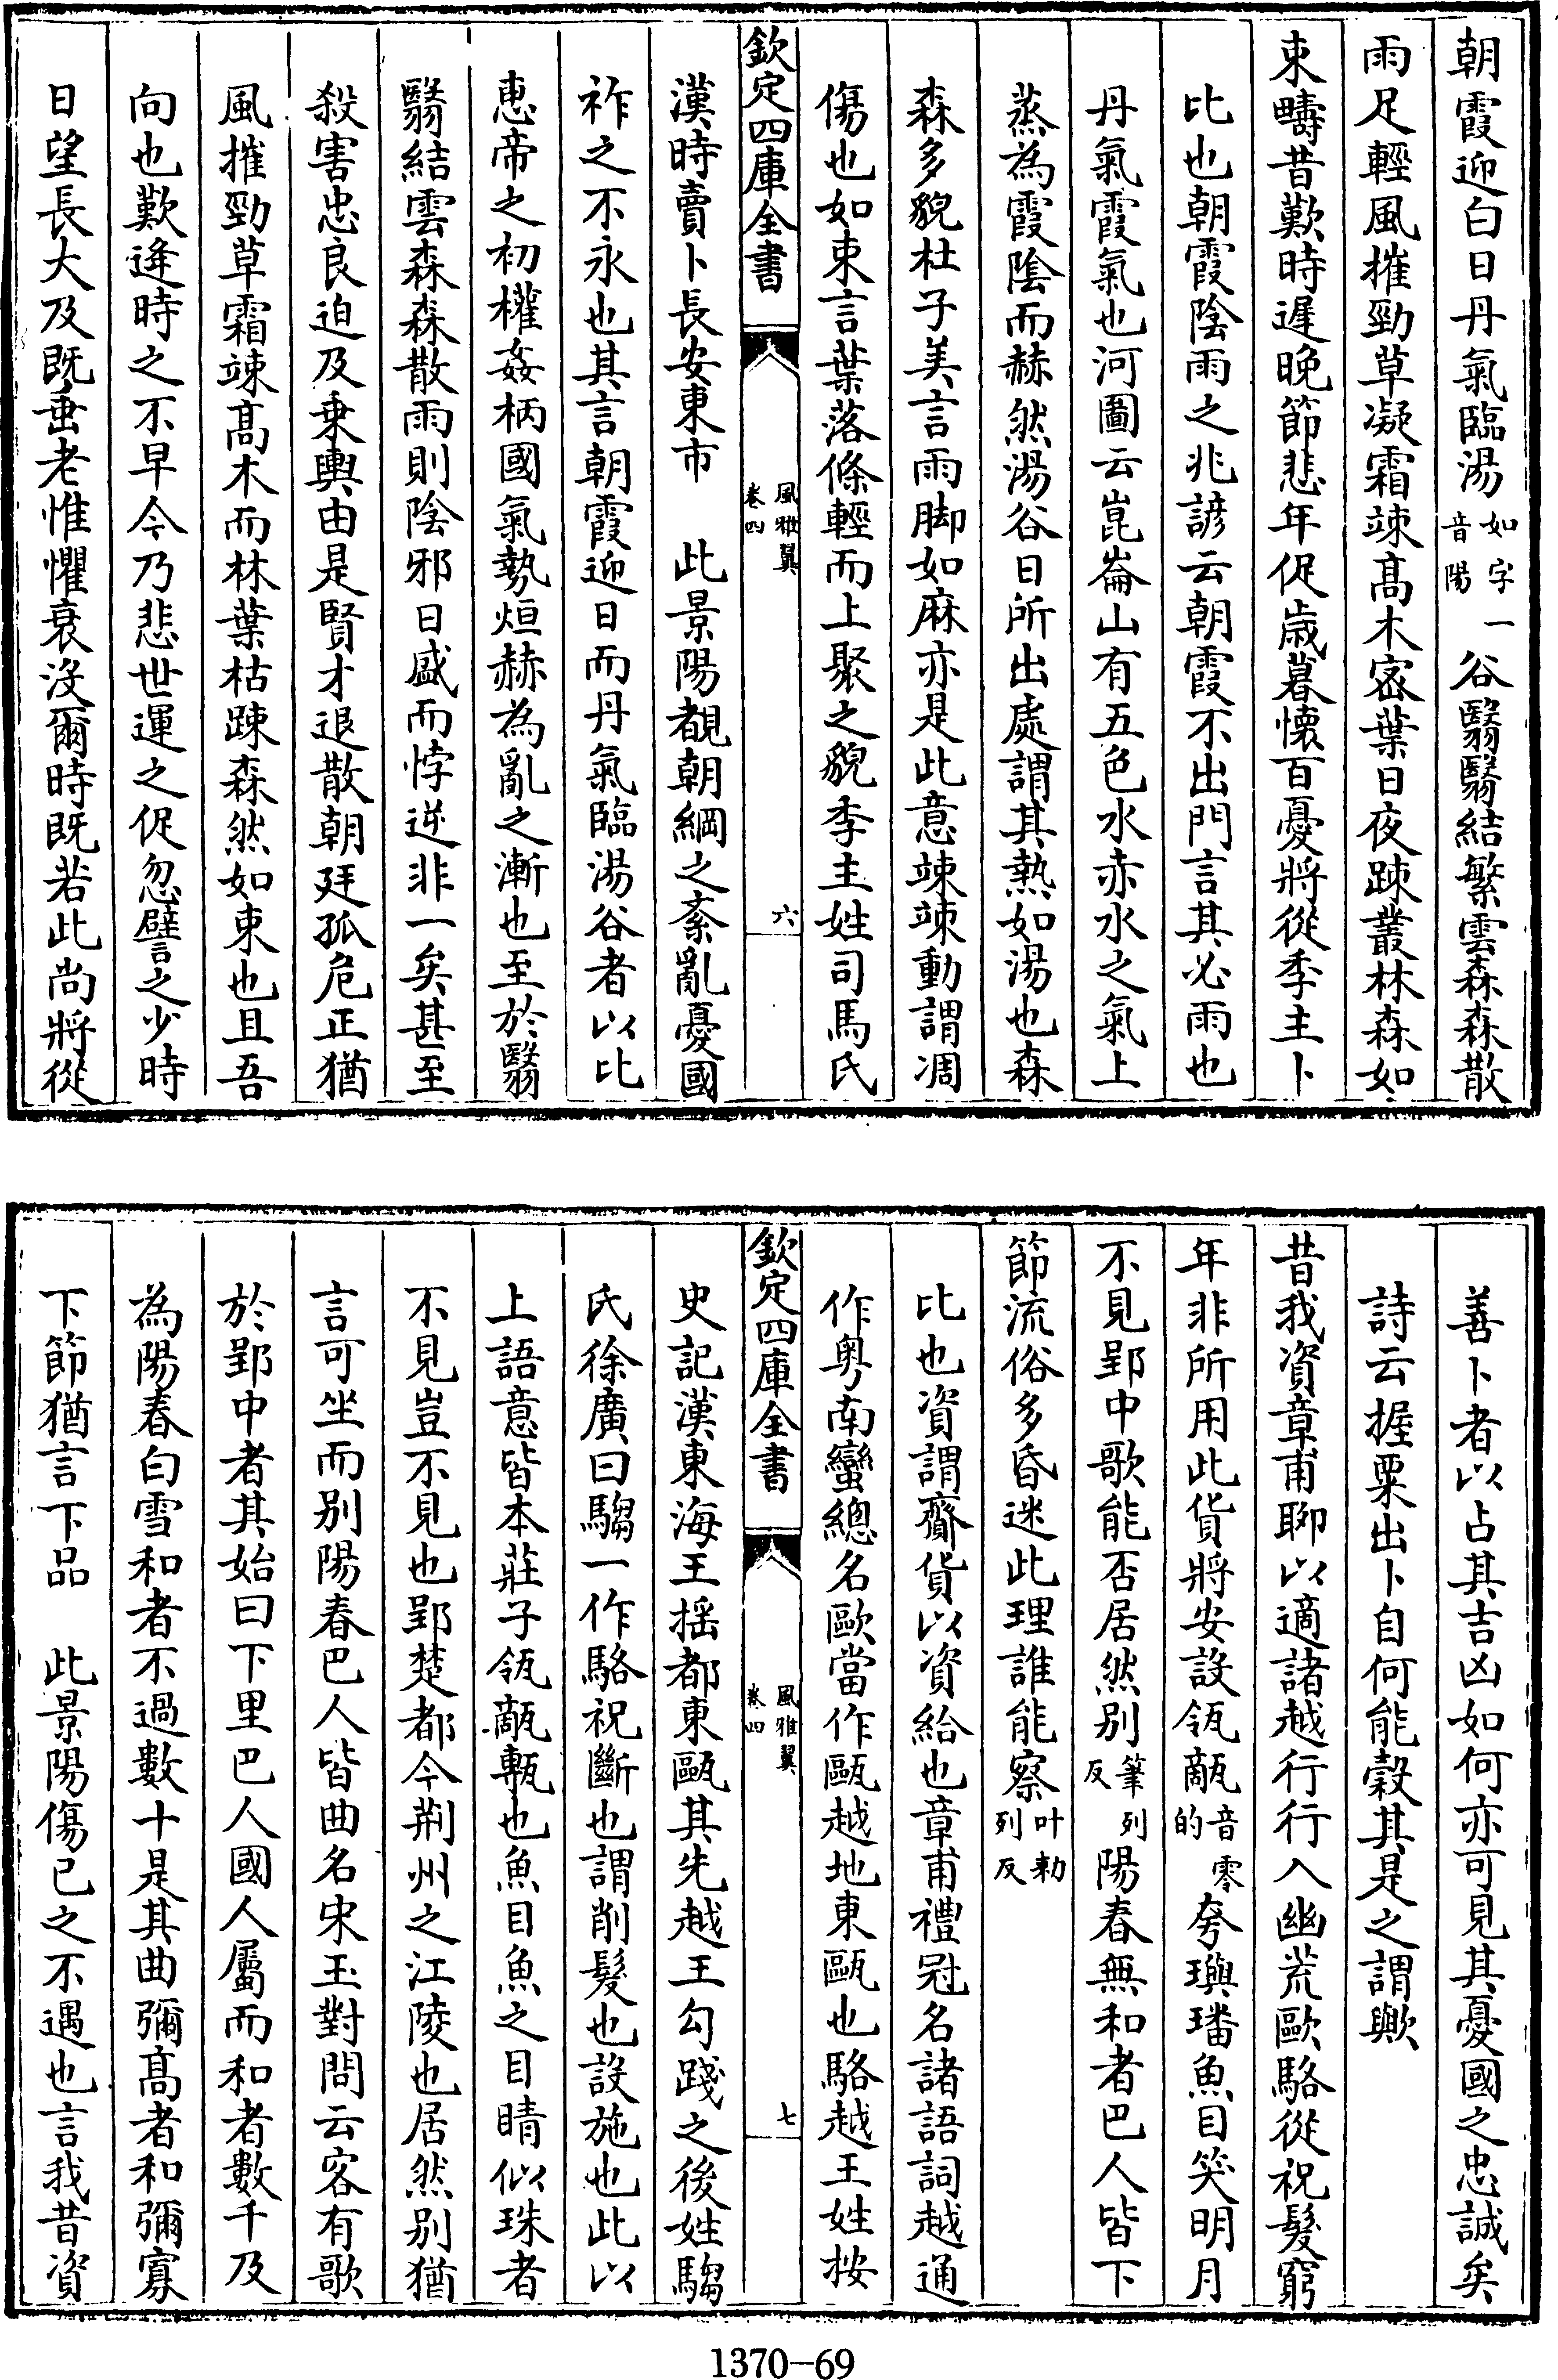 朝霞迎白日丹氣臨湯如字一音陽谷翳翳結繁雲森森散
雨足輕風摧勁草凝霜竦髙木宻葉日夜踈叢林森如
束疇昔歎時遲晚節悲年促歳暮懐百憂將從季主卜
比也朝霞隂雨之兆諺云朝霞不出門言其必雨也
丹氣霞氣也河圖云崑崙山有五色水赤水之氣上
蒸為霞隂而赫然湯谷日所出處謂其熱如湯也森
森多貌杜子美言雨脚如麻亦是此意竦竦動謂凋
傷也如束言葉落條輕而上聚之貌季主姓司馬氏
欽定四庫全書 風雅翼 卷四 六
漢時賣卜長安東市 此景陽覩朝綱之紊亂憂國
祚之不永也其言朝霞迎日而丹氣臨湯谷者以比
恵帝之初權姦柄國氣勢烜赫為亂之漸也至於翳
翳結雲森森散雨則隂邪日盛而悖逆非一矣甚至
殺害忠良迫及乗輿由是賢才退散朝廷孤危正猶
風摧勁草霜竦髙木而林葉枯踈森然如束也且吾
向也歎逢時之不早今乃悲世運之促忽譬之少時
日望長大及既垂老惟懼衰沒爾時既若此尚將從
善卜者以占其吉凶如何亦可見其憂國之忠誠矣
詩云握粟出卜自何能穀其是之謂歟
昔我資章甫聊以適諸越行行入幽荒歐駱從祝髮窮
年非所用此貨將安設瓴甋音零的夸璵璠魚目笑明月
不見郢中歌能否居然别筆列反陽春無和者巴人皆下
節流俗多昏迷此理誰能察叶勅列反
比也資謂齎貨以資給也章甫禮冠名諸語詞越通
作粤南蠻總名歐當作甌越地東甌也駱越王姓按
欽定四庫全書 風雅翼 卷四 七
史記漢東海王揺都東甌其先越王勾踐之後姓騶
氏徐廣曰騶一作駱祝斷也謂削髮也設施也此以
上語意皆本莊子瓴甋甎也魚目魚之目睛似珠者
不見豈不見也郢楚都今荆州之江陵也居然别猶
言可坐而别陽春巴人皆曲名宋玉對問云客有歌
於郢中者其始曰下里巴人國人屬而和者數千及
為陽春白雪和者不過數十是其曲彌髙者和彌寡
下節猶言下品 此景陽傷已之不遇也言我昔資
1370—69